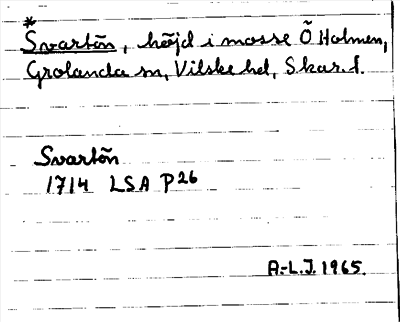 *
Svartön, höjd i mosse Ö Holmen,
Grolanda sn, Vilske hd, Skar. l.
Svartön
1714 LSA P26
A.-L.J. 1965.